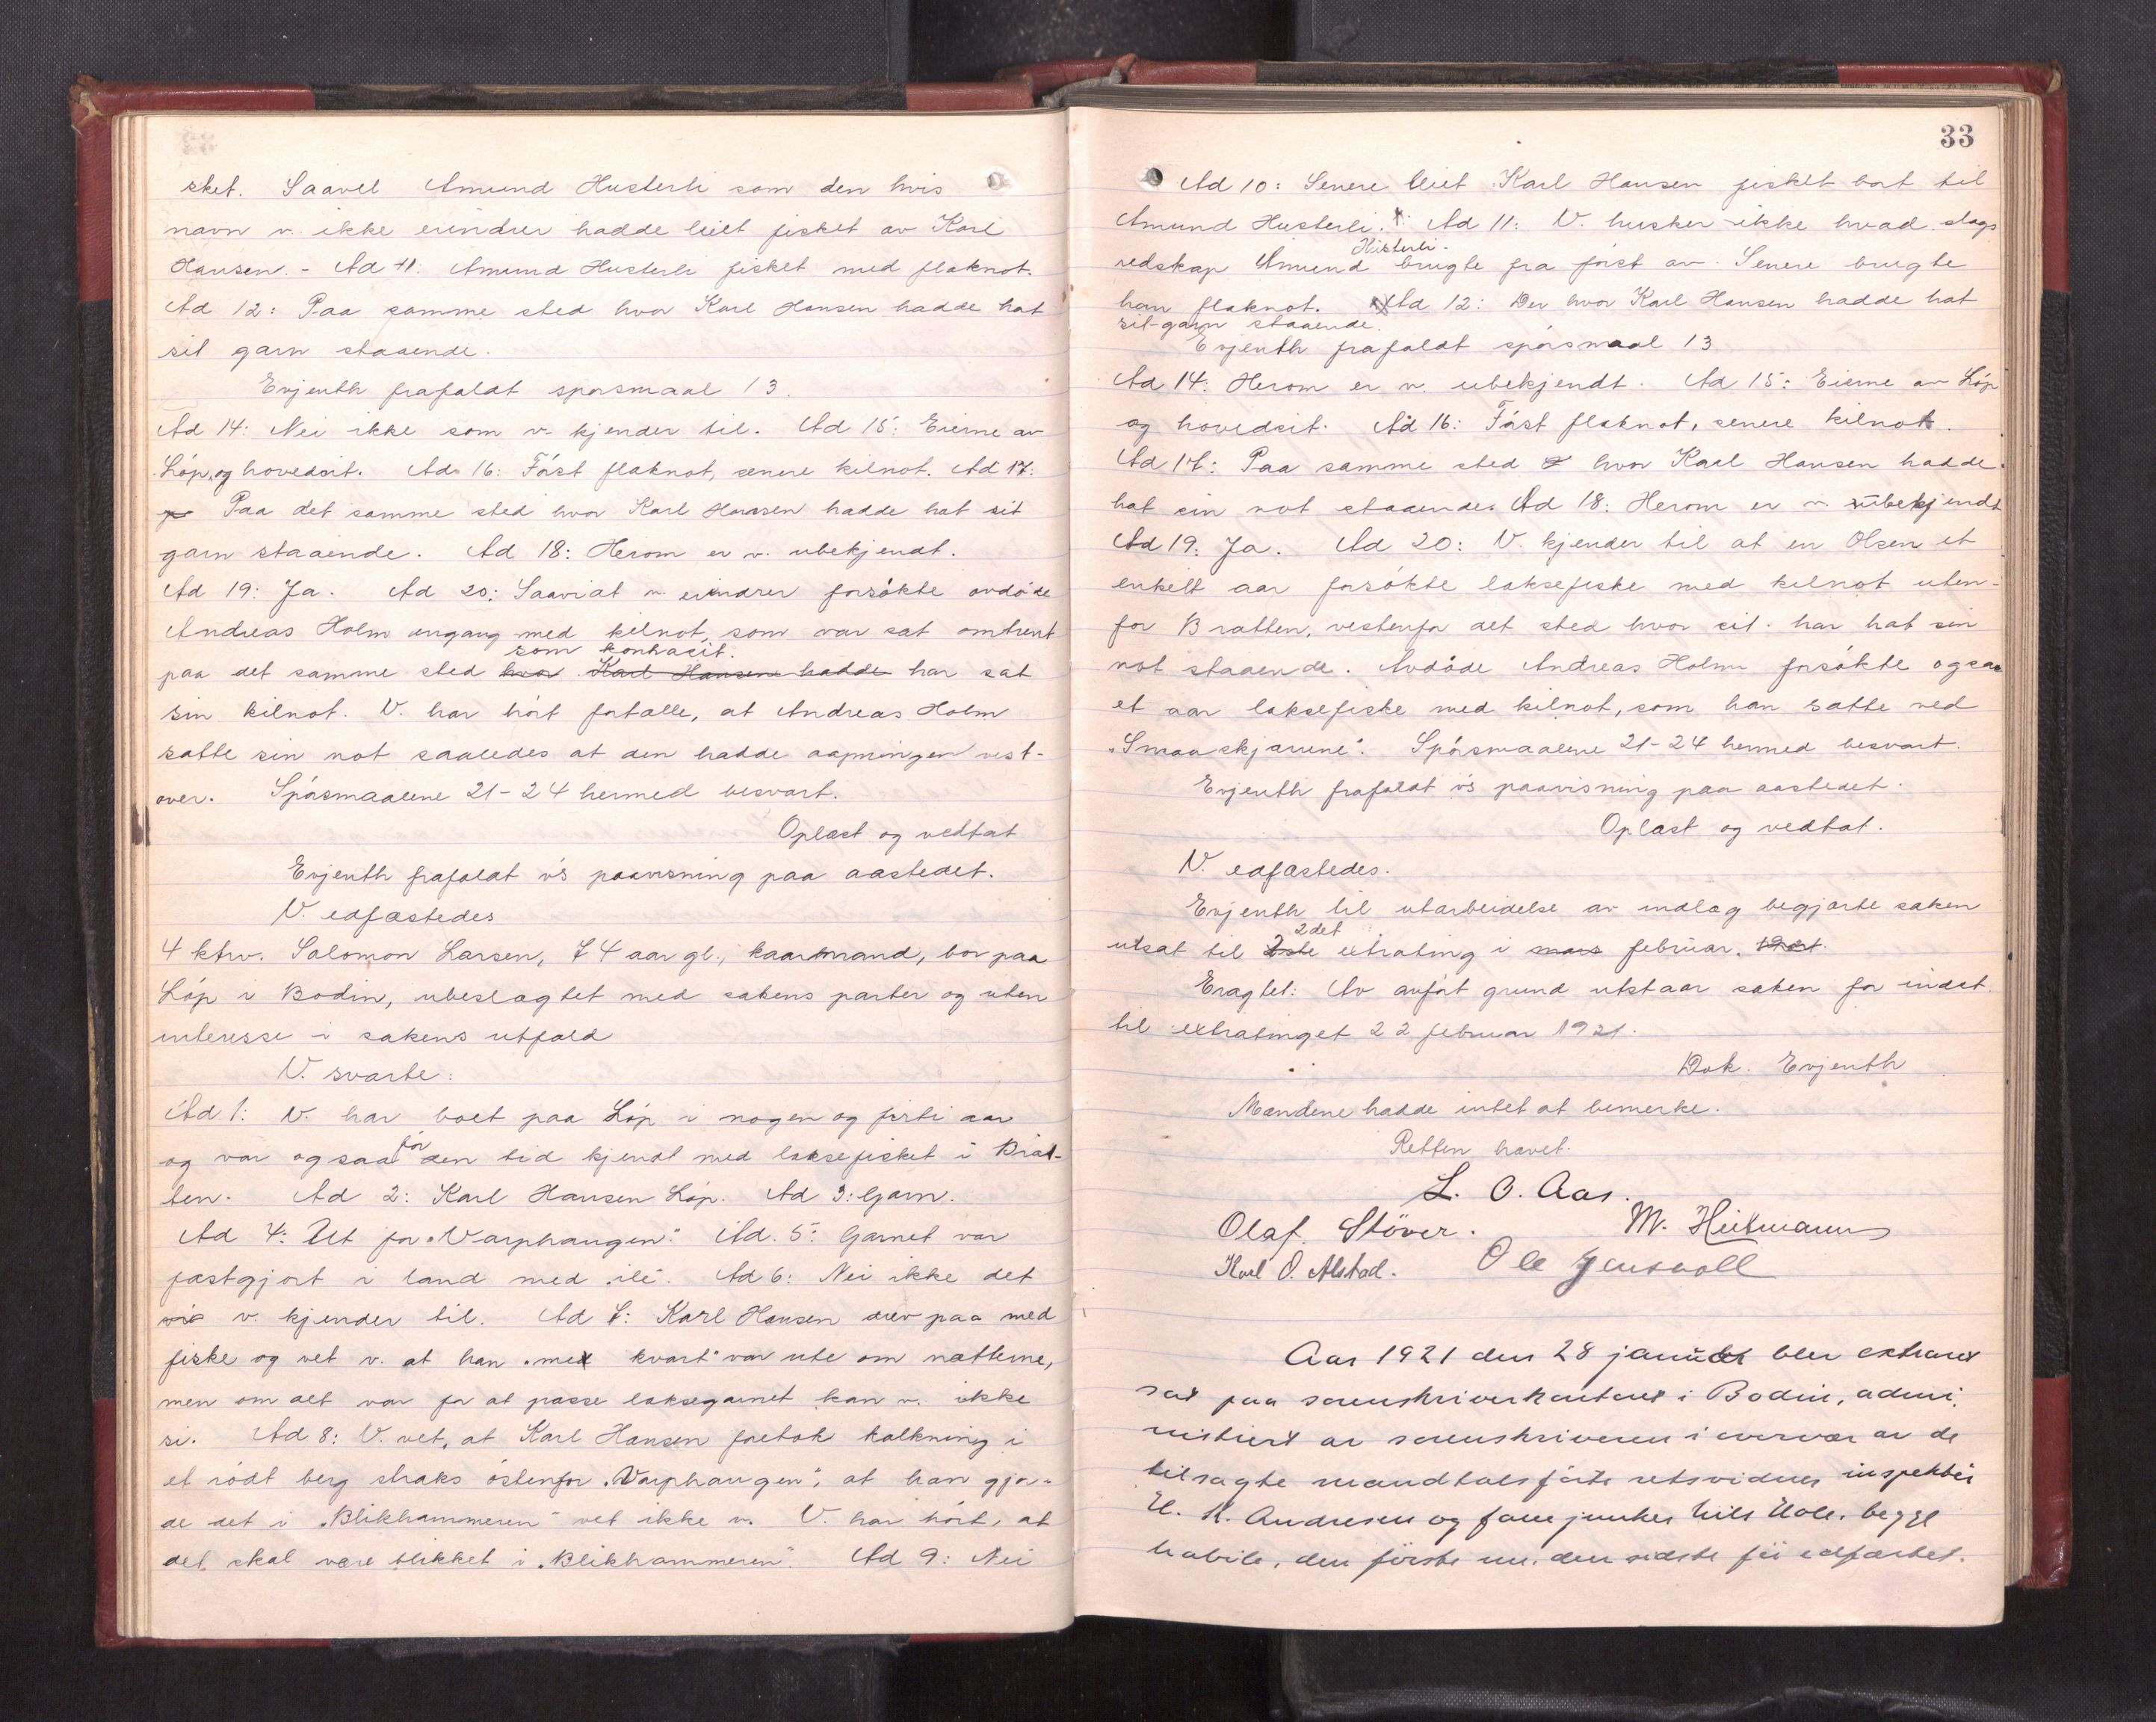 sket. Saavel Amund Husterli som den hvis
navn v. ikke erindrer hadde leiet fisket av Karl
Hansen. - Ad 11: Amund Husterli fisket med flaknot.
Ad 12: Paa samme sted hvor Karl Hansen hadde hat
sit garn staaende.
Evjenth frafaldt spørsmaal 13.
Ad 14: Nei ikke som v. kjender til. Ad 15: Eierne av
Løp, og hovedcit. Ad 16: Først flaknot, senere kilnot. Ad 17:
Paa det samme sted hvor Karl Hansen hadde hat sit
garn staaende. Ad 18: Herom er v. ubekjendt.
Ad 19: Ja. Ad 20: Saavidt v. erindrer forsøkte avdøde
Andreas Holm engang med kilnot, som var sat omtrent
som kontracit.
paa det samme sted hvor Karl Hansen hadde har sat
sin kilnot. V. har hørt fortælle, at Andreas Holm
satte sin not saaledes at den hadde aapningen vest-
over. Spørsmaalene 21-24 hermed besvart.
Oplæst og vedtat
Evjenth frafaldt v's paavisning paa aastedet.
V. edfæstedes
4 ktrv. Salomon Larsen, 74 aar gl., kaarmand, bor paa
Løp i Bodin, ubeslægtet med sakens parter og uten
interesse i sakens utfald
V. svarte:
Ad 1: V. har boet paa Løp i nogen og firti aar
før
og var ogsaa den tid kjendt med laksefisket i Brat-
ten. Ad 2: Karl Hansen Løp. Ad 3: Garn.
Ad 4: Ut for "Varphaugen". Ad. 5: Garnet var
fastgjort i land med "ile". Ad 6: Nei ikke det
v. kjender til. Ad 7: Karl Hansen drev paa med
fiske og vet v. at han "met kvart" var ute om nætterne,
men om det var for at passe laksegarnet kan v. ikke
si. Ad 8: V. vet, at Karl Hansen foretok kalkning i
et rødt berg straks østenfor "Varphaugen", at han gjor-
de det i "Blikhammeren" vet ikke v. V. har hørt, at
det skal være blikket i "Blikhammeren". Ad 9: Nei
33
Ad 10: Senere leiet Karl Hansen fisket bort til
Amund Husterli. Ad 11: V. husker ikke hvad slags
Husterli
redskap Amund brugte fra først av. Senere brugte
han flaknot. Ad 12: Der hvor Karl Hansen hadde hat
sit garn staaende.
Evjenth frafaldt spørsmaal 13
Ad 14: Herom er v. ubekjendt. Ad 15: Eierne av Løp
og hovedcit. Ad 16: Først flaknot, senere kilnot.
Ad 17: Paa samme sted hvor Karl Hansen hadde
hat sin not staaende. Ad 18: Herom er v. ubekjendt
Ad 19: Ja. Ad 20: V. kjender til at en Olsen et
enkelt aar forsøkte laksefiske med kilnot uten-
for Bratten, vestenfor det sted hvor cit. har hat sin
not staaende. Avdøde Andreas Holm forsøkte ogsaa
et aar laksefiske med kilnot, som han satte ved
"Smaaskjærene". Spørsmaalene 21-24 hermed besvart.
Evjenth frafaldt v's paavisning paa aastedet.
Oplæst og vedtat.
V. edfæstedes.
Evjenth til utarbeidelse av indlæg begjærte saken
2det
utsat til extrating i mars februar.
Eragtet: Av anført grund utstaar saken for indst.
til extratinget 22 februar 1921.
Dok. Evjenth
Mændene hadde intet at bemerke.
Retten hævet.
L. O. Aas.
Olaf Støver. M. Heitmann
Karl O. Alstad. Ole Jensvoll
Aar 1921 den 28 januar blev extraret
sat paa sorenskriverkontoret i Bodin, admi-
nistrert av sorenskriveren i overvær av de
tilsagte mandtalsførte retsvidner inspektør
E. K. Andresen og fanejunker Nils Hole, begge
habile, den første nu, den sidste før edfæstet.